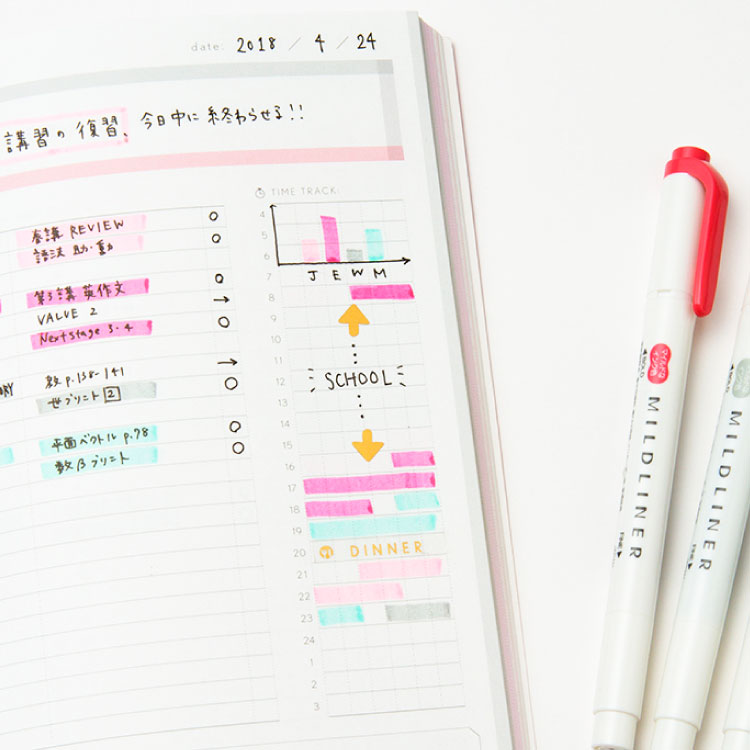 date: 2018 / 4 / 24
講習の復習、今日中に終わらせる!!
TIME TRACK:
4
5
6
J E W M
7
8
9
10
11
12
13
14
15
16
17
18
19
20
21
22
23
24
1
2
3
SCHOOL
DINNER
春講 REVIEW
語法 助・動
第3講 英作文
VALUE 2
Next Stage 3・4
数 p.138-141
世プリント 2
平面ベクトル p.78
数Bプリント
MILDLINER
MILDLINER